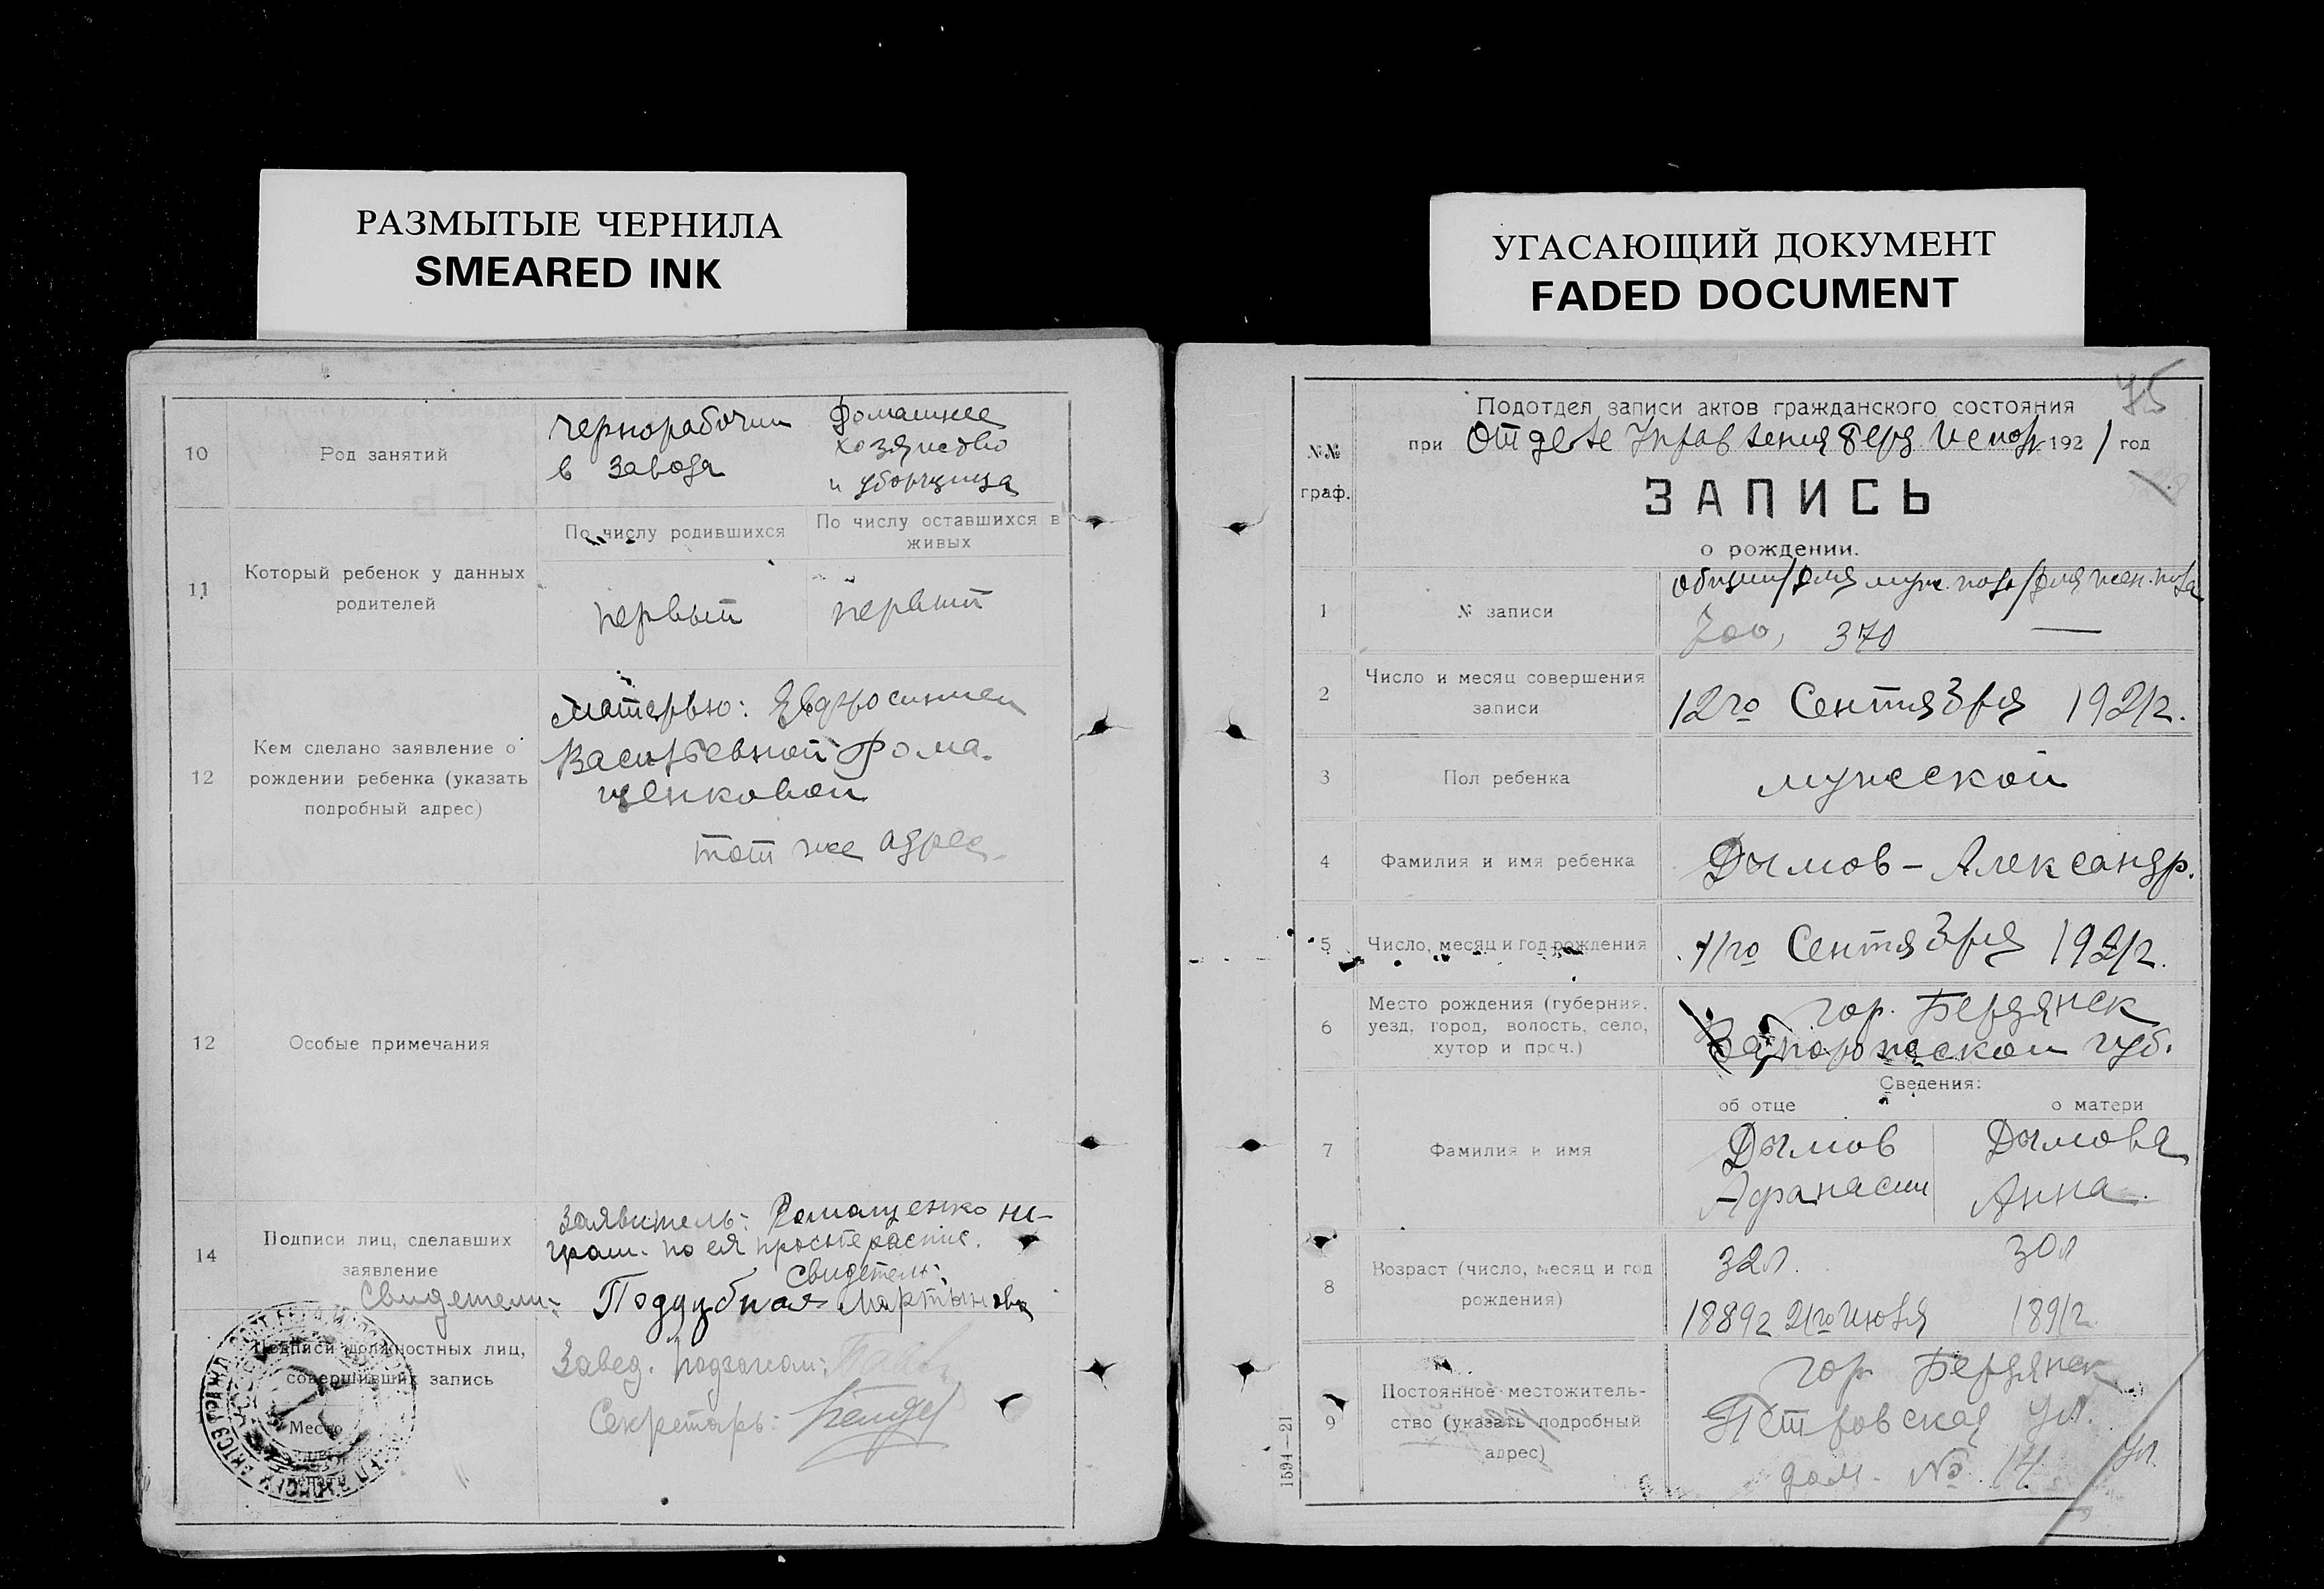 РАЗМЫТЫЕ ЧЕРНИЛА
SMEARED INK
10
Род занятий
чернорабочий
в завода
домашнее
хозяйство
и уборщица
11
Который ребенок у данных
родителей
По числу родившихся
По числу оставшихся в
живых
первый
первый
12
Кем сделано заявление о
рождении ребенка (указать
подробный адрес)
Матерью: Евфросинией
Васильевной Рома-
щенковой
тот же адрес.
12
Особые примечания
14
Подписи лиц, сделавших
заявление
Свидетели:
Заявитель: Ромащенко не-
грам. по ея просьбе распис.
Свидетель:
Поддубная Мартынова
Подписи должностных лиц,
совершивших запись
Место
печати
Завед. подзагсом:
Секретарь:
УГАСАЮЩИЙ ДОКУМЕНТ
FADED DOCUMENT
75
№№
граф.
Подотдел записи актов гражданского состояния
при Отделе Управления Берд. Исполк 1921 год
ЗАПИСЬ
о рождении.
1
№ записи
общий/для муж. пола/для жен. пола
700, 370 —
2
Число и месяц совершения
записи
12го Сентября 1921г.
3
Пол ребенка
мужской
4
Фамилия и имя ребенка
Дымов - Александр.
5
Число, месяц и год рождения
1го Сентября 1921г.
6
Место рождения (губерния,
уезд, город, волость, село,
хутор и проч.)
гор. Бердянск
Запорожской губ.
Сведения:
об отце
о матери
7
Фамилия и имя
Дымов
Афанасий
Дымова
Анна.
8
Возраст (число, месяц и год
рождения)
32л.
1889г 21го июля
30л
1891г.
9
Постоянное местожитель-
ство (указать подробный
адрес)
гор. Бердянск
Петровская ул.
дом. № 14.
1594—21